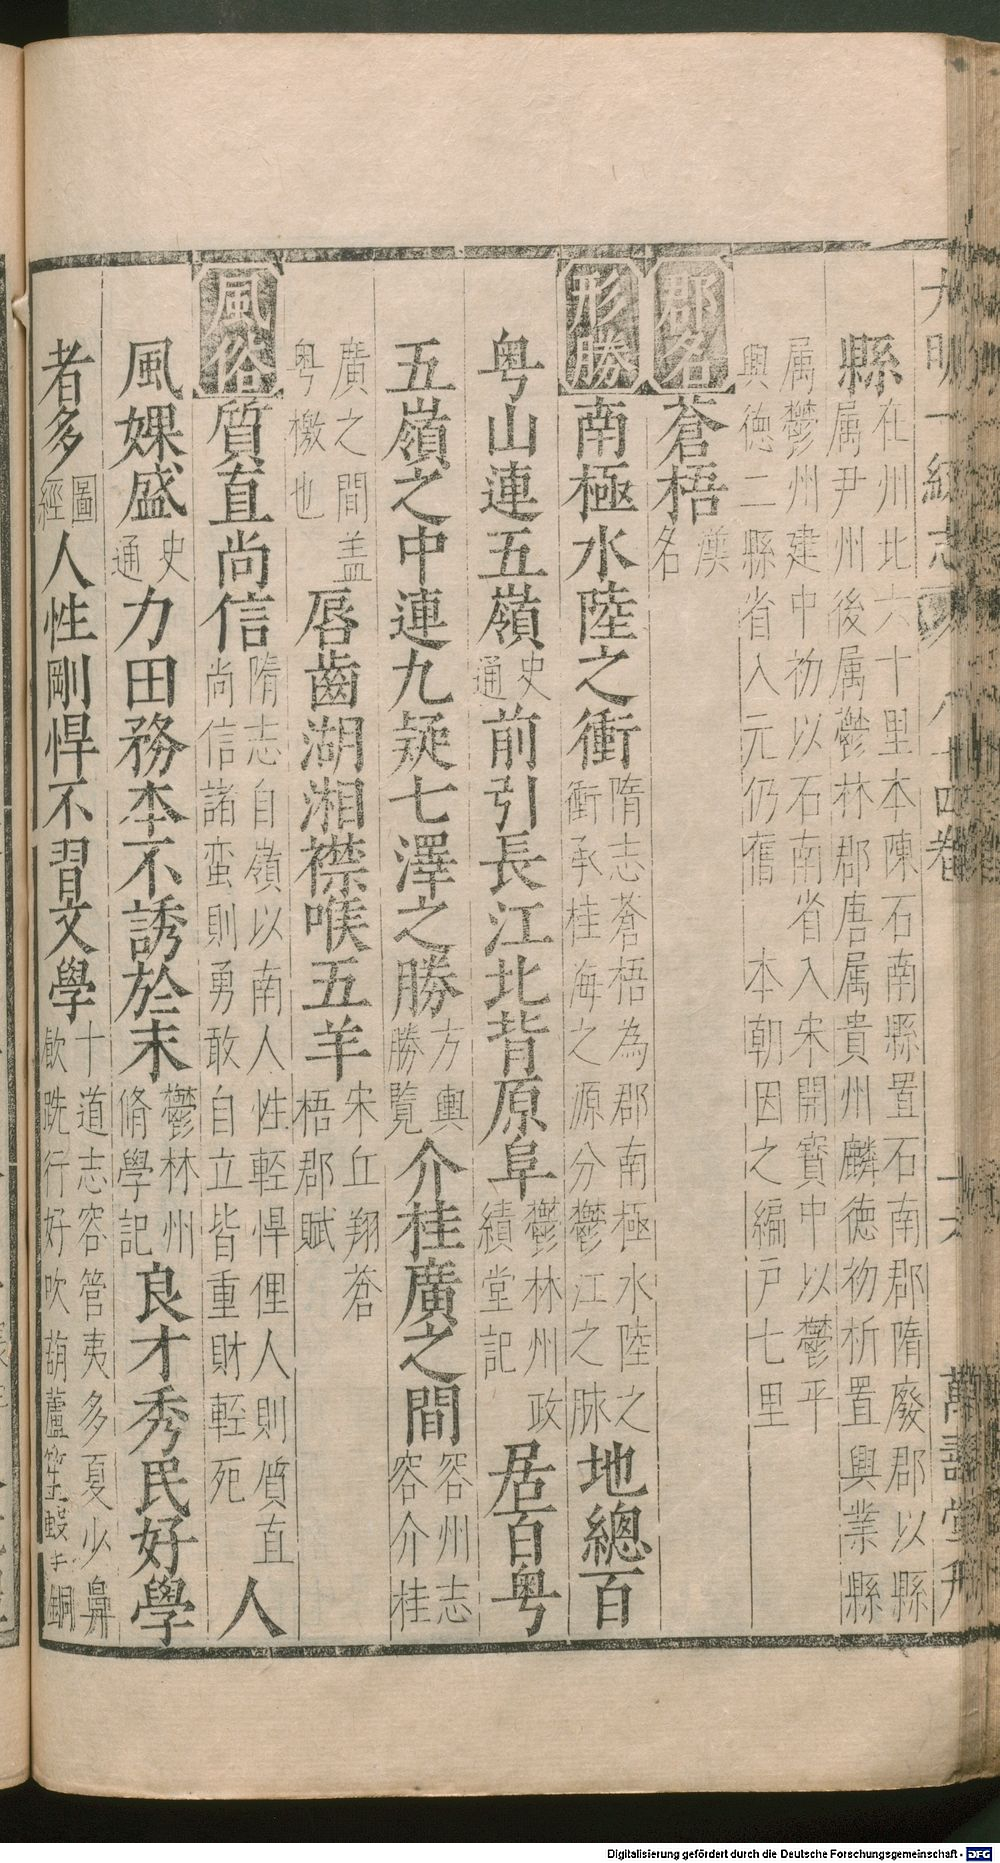 大明一統志 八十四卷 十六 萬壽堂刊
縣在州北六十里本陳石南縣置石南郡隋廢郡以縣
属尹州後属鬱林郡唐属貴州麟德初析置興業縣
属鬱州建中初以石南省入宋開寶中以鬱平
興德二縣省入元仍舊 本朝因之編戶七里
郡名 蒼梧漢名
形勝 南極水陸之衝隋志蒼梧為郡南極水陸之衝承桂海之源分鬱江之脉地總百
粤山連五嶺史通前引長江北背原阜鬱林州政績堂記居百粤
五嶺之中連九疑七澤之勝方輿勝覽介桂廣之間容州志容介桂
廣之間盖粤檄也唇齒湖湘襟喉五羊宋丘翔蒼梧郡賦
風俗 質直尚信隋志自嶺以南人性輕悍俚人則質直尚信諸蛮則勇敢自立皆重財輕死人
風婐盛史通力田務本不誘於末鬱林州脩學記良才秀民好學
者多圖經人性剛悍不習文學十道志容管夷多夏少鼻飲跣行好吹葫蘆笙銅
Digitalisierung gefördert durch die Deutsche Forschungsgemeinschaft - DFG